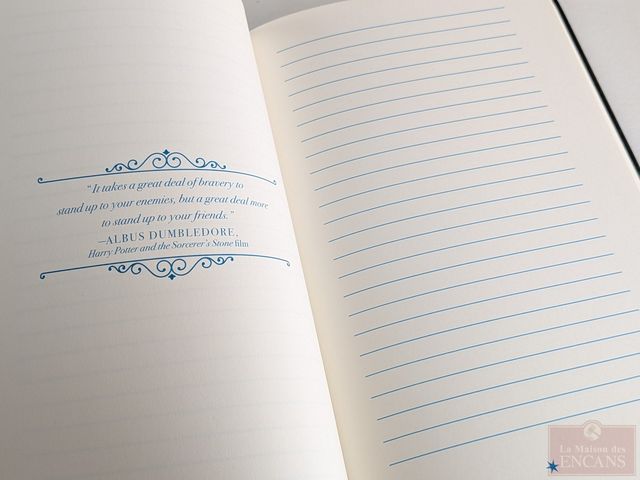 “It takes a great deal of bravery to
stand up to your enemies, but a great deal more
to stand up to your friends.”
—ALBUS DUMBLEDORE,
Harry Potter and the Sorcerer's Stone film
La Maison des
ENCANS